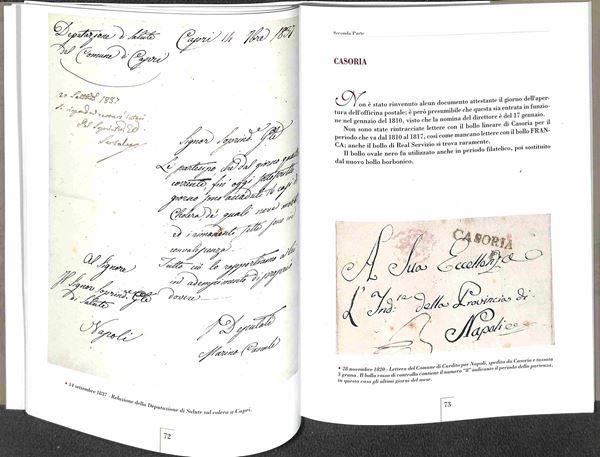 Deputazione di Salute
del Comune di Capri
Capri 14 7bre 1837
20 Settbre 1837
Signor Soprind. Gle
Le partecipo, che dal giorno quattro
corrente, fin oggi
giorno sono accaduti 16 casi di
Cholera, de' quali nove morti
ed i rimanenti sette sono in
convalescenza
Tutto ciò le rapportiamo
in adempimento di proprio
dovere
Al Signore
Il Signor Soprind. Gle
di Salute
Napoli
Il Deputato
Marino Canale
• 14 settembre 1837 - Relazione della Deputazione di Salute sul colera a Capri.
72
Seconda Parte
CASORIA
Non è stato rinvenuto alcun documento attestante il giorno dell'aper-
tura dell'officina postale; è però presumibile che questa sia entrata in funzio-
ne nel gennaio del 1810, visto che la nomina del direttore è del 17 gennaio.
Non sono state rintracciate lettere con il bollo lineare di Casoria per il
periodo che va dal 1810 al 1817, così come mancano lettere con il bollo FRAN-
CA; anche il bollo di Real Servizio si trova raramente.
Il bollo ovale nero fu utilizzato anche in periodo filatelico, poi sostituito
dal nuovo bollo borbonico.
CASORIA
A Sua Eccellenza
L'Indte della Provincia di
Napoli
• 28 novembre 1820 - Lettera del Comune di Cardito per Napoli, spedita da Casoria e tassata
3 grana. Il bollo rosso di controllo contiene il numero "8" indicante il periodo della partenza,
in questo caso gli ultimi giorni del mese.
73